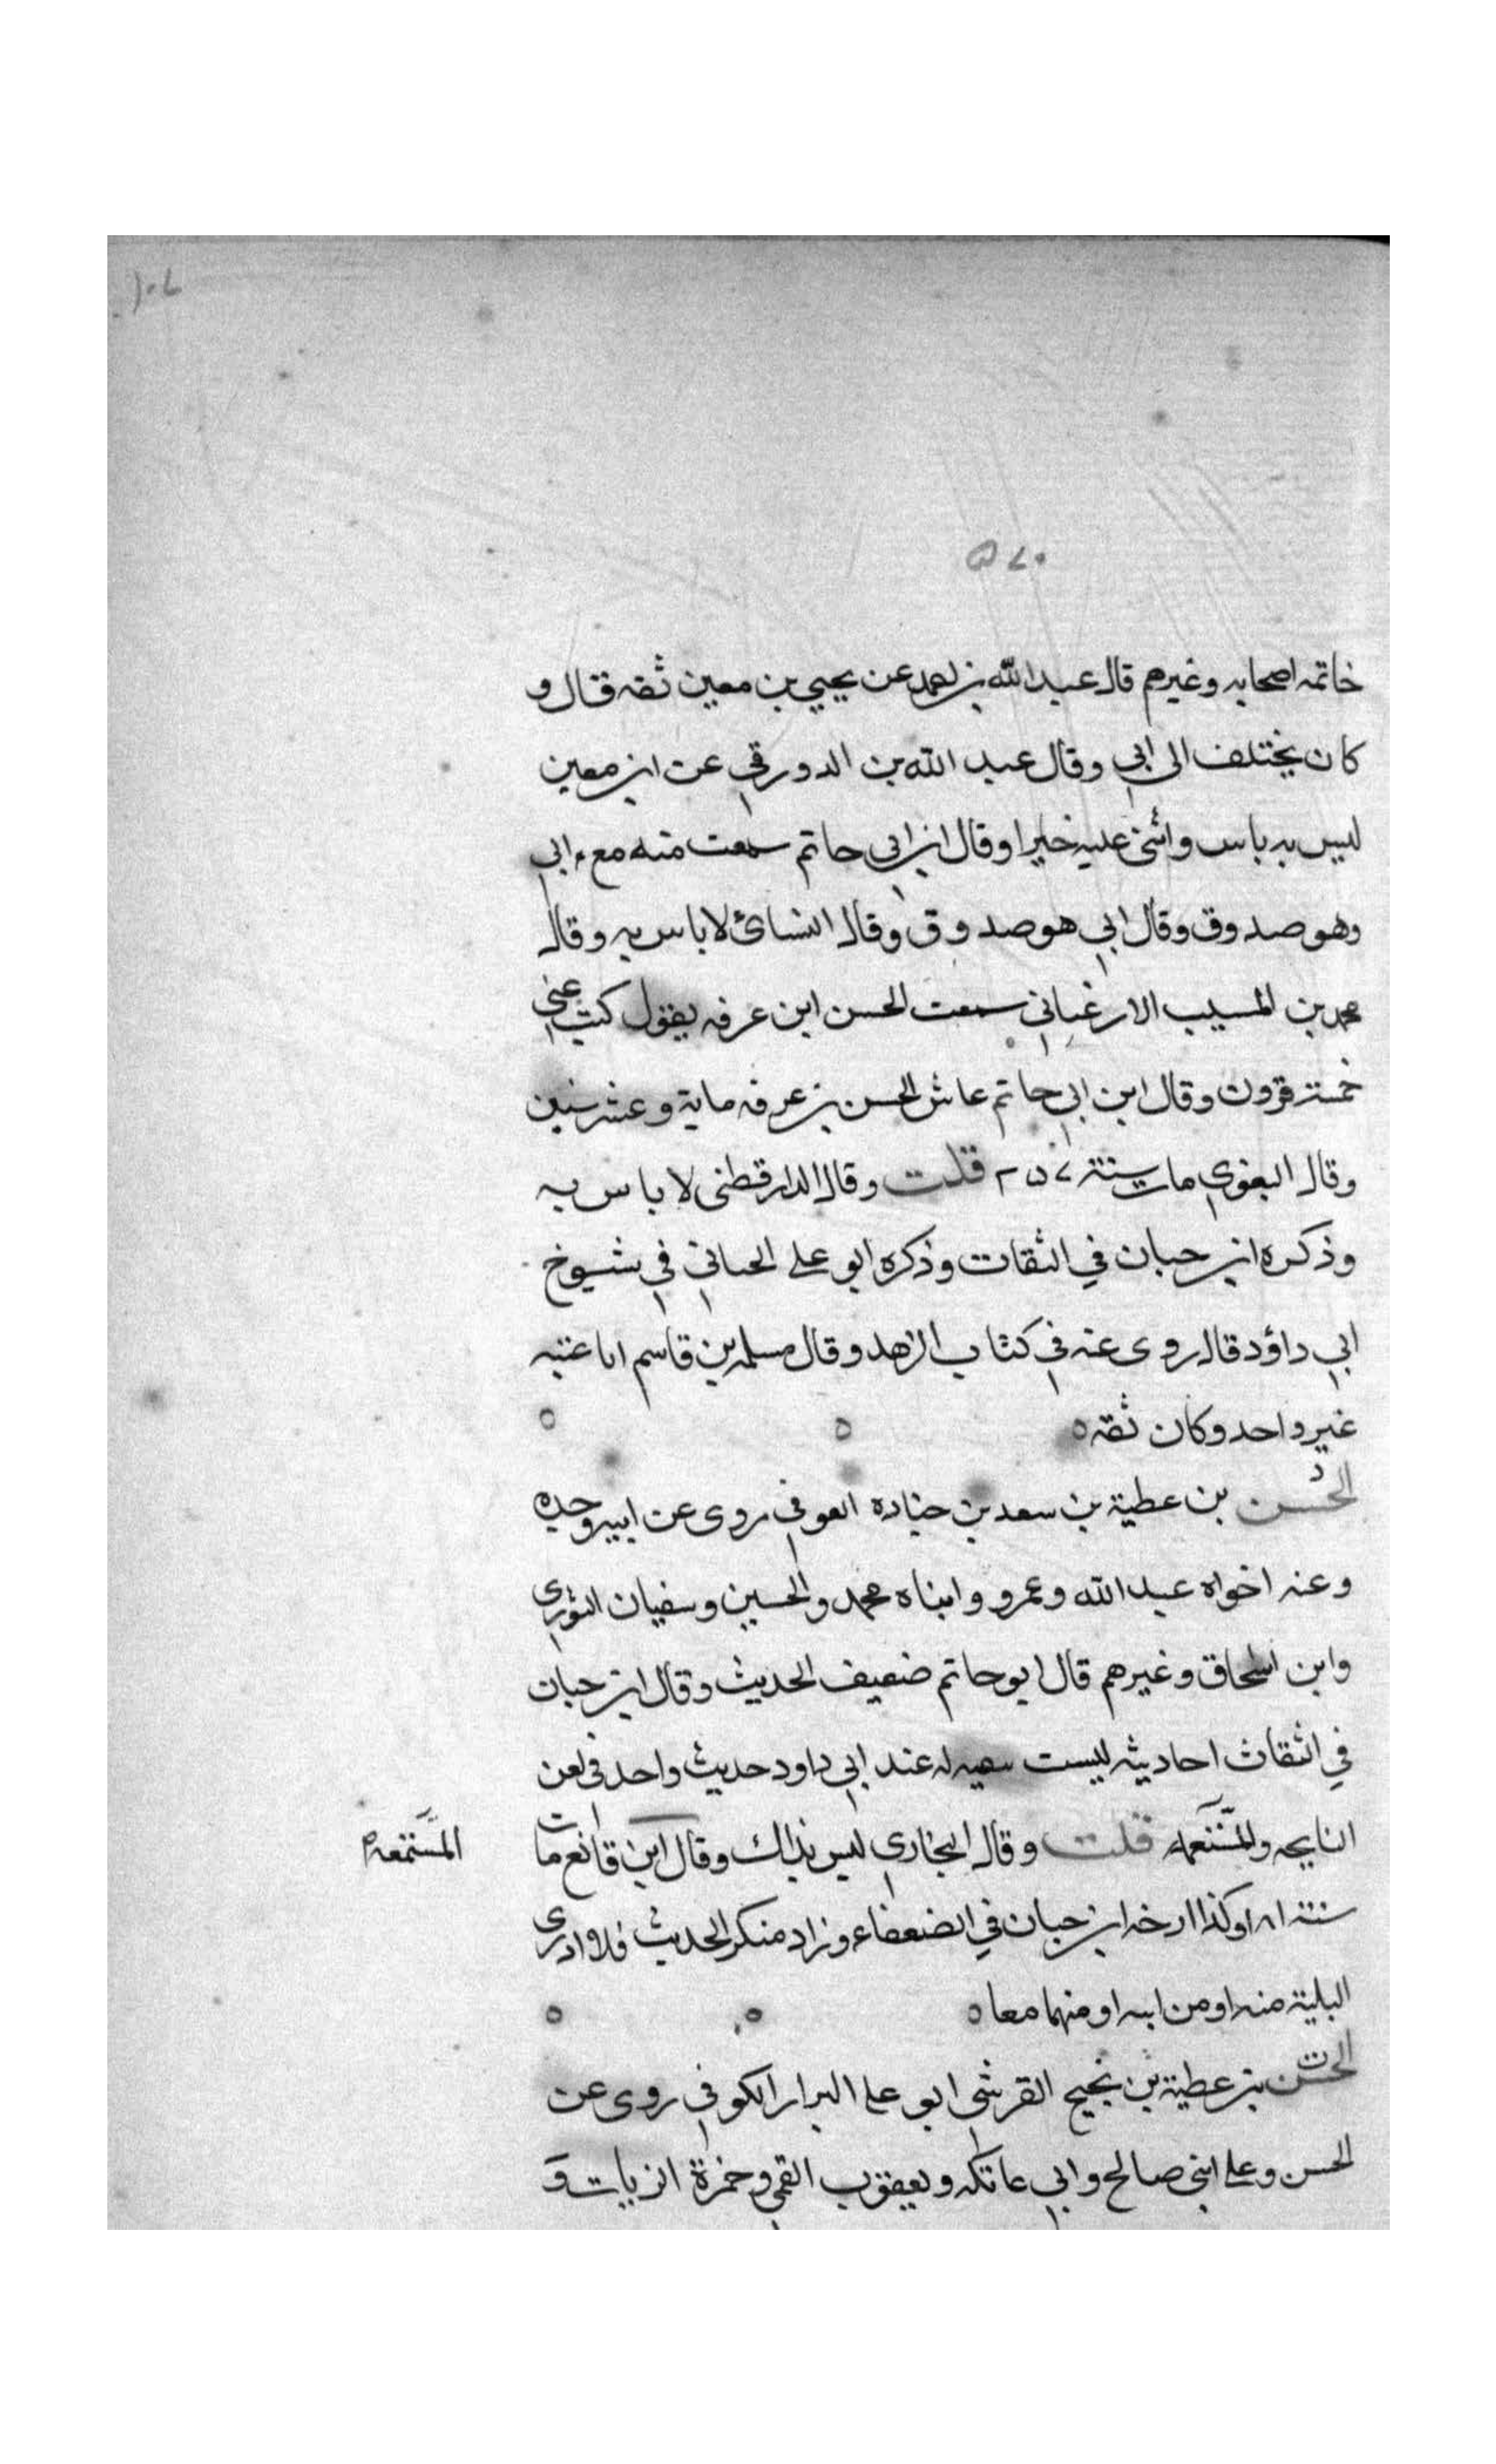 ١٠٧
٥٧٠
خاتمه اصحابه وغيرهم قال عبد الله بن احمد عن يحيي بن معين ثقه قال و
كان يختلف الى ابي وقال عبد الله بن الدورقي عن ابن معين
ليس به باس واثنى عليه خيرا وقال ابن ابي حاتم سمعت منه مع ابي
وهو صدوق وقال ابي هو صدوق وقال النسائ لا باس به وقال
محمد بن المسيب الارغياني سمعت الحسن ابن عرفه يقول كتب عني
خمسة قرون وقال ابن ابي حاتم عاش الحسن بن عرفه ماية وعشر سنين
وقال البغوي مات سنة ٢٥٧ قلت وقال الدارقطني لا باس به
وذكره ابن حبان في الثقات وذكره ابو علي الحياني في شيوخ
ابي داؤد قال روى عنه في كتاب الزهد وقال مسلمه بن قاسم انا عنه
غير واحد وكان ثقه ه
د
الحسن بن عطية بن سعد بن جناده العوفي روى عن ابيه وجده
وعنه اخواه عبد الله وعمرو وابناه محمد والحسين وسفيان الثوري
وابن اسحاق وغيرهم قال ابو حاتم ضعيف الحديث وقال ابن حبان
في الثقات احاديثه ليست له عند ابي داود حديث واحد في لعن
النايحه والمستمعه قلت وقال البخاري ليس بذاك وقال ابن قانع مات
المستمعه
سنة ١٨١ وكذا ارخه ابن حبان في الضعفاء وزاد منكر الحديث فلا ادري
البلية منه او من ابيه او منهما معا ه
ت
الحسن بن عطية بن نجيح القرشي ابو علي البزار الكوفي روى عن
الحسن وعلي ابني صالح وابي عاتكه ويعقوب القمي وحمزة الزيات و